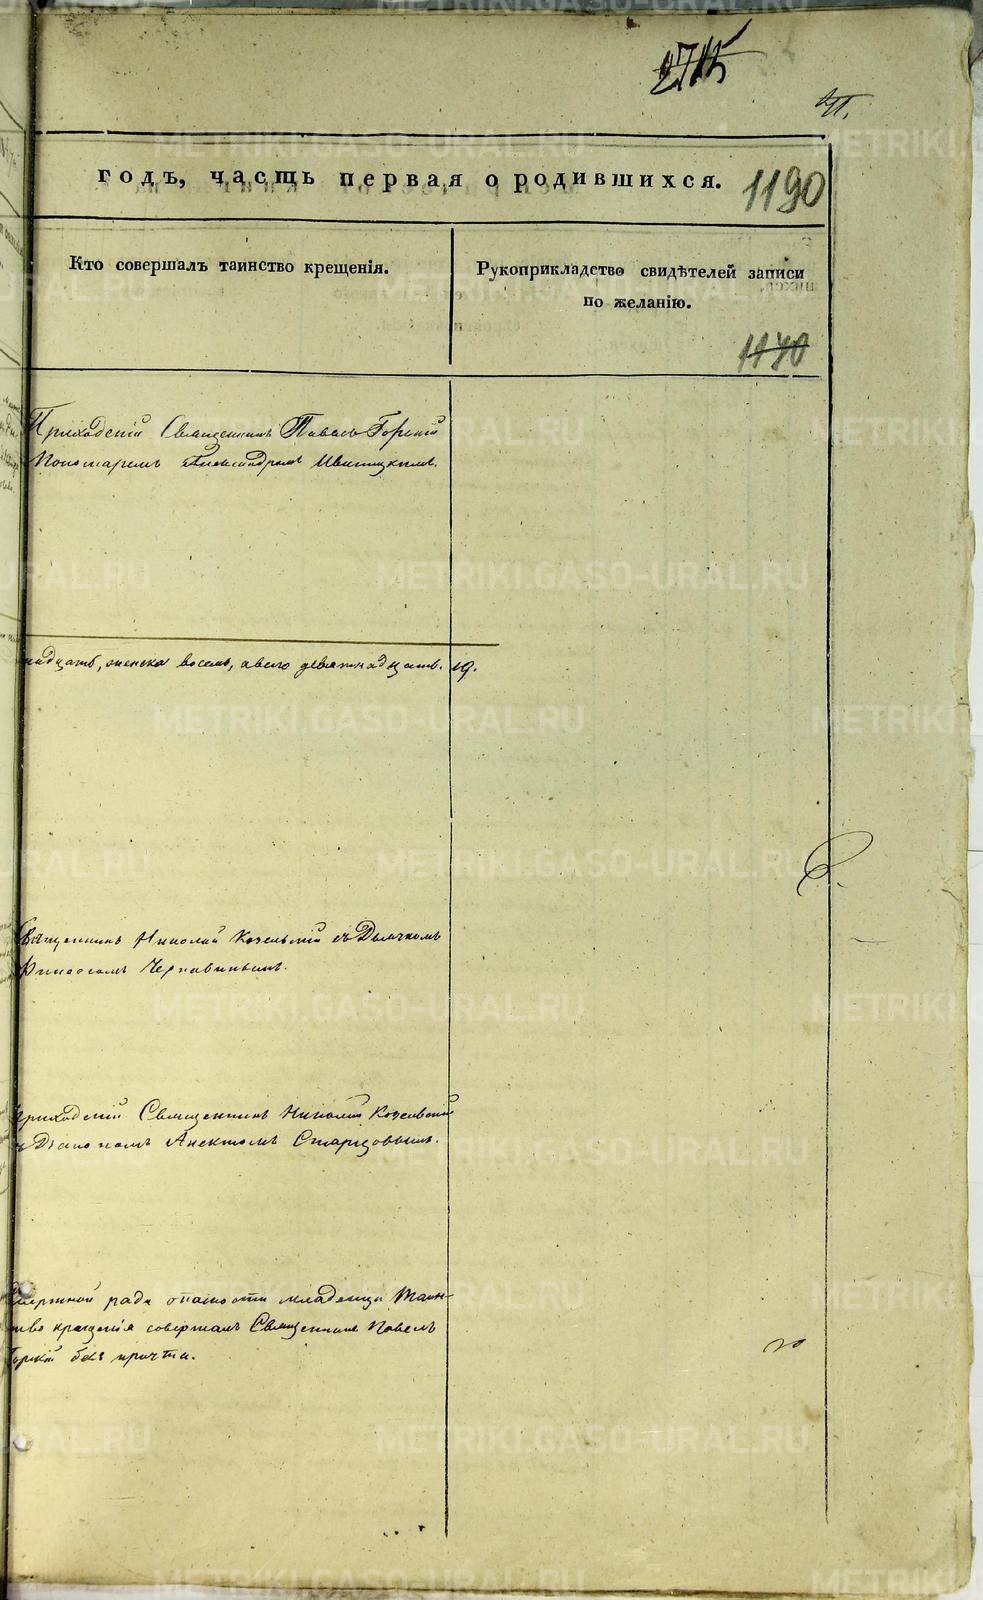 METRIKI.GASO-URAL.RU
2715
годъ, часть первая о родившихся. 1190
Кто совершалъ таинство крещенія.
Рукоприкладство свидѣтелей записи
по желанію.
1170
Приходскій Священникъ Павелъ Горскій
Пономаремъ Александромъ
надцать, женска восемь, а всего девятнадцать. 19.
Священникъ Николай Козельскій съ Дьячкомъ
Финеесомъ Чернавинымъ.
Приходскій Священникъ Николай Козельскій
съ Діакономъ Анектомъ Старцовымъ.
Смертной ради опасности младенца Таин-
ство крещенія совершалъ Священникъ Павелъ
Горскій безъ причта.